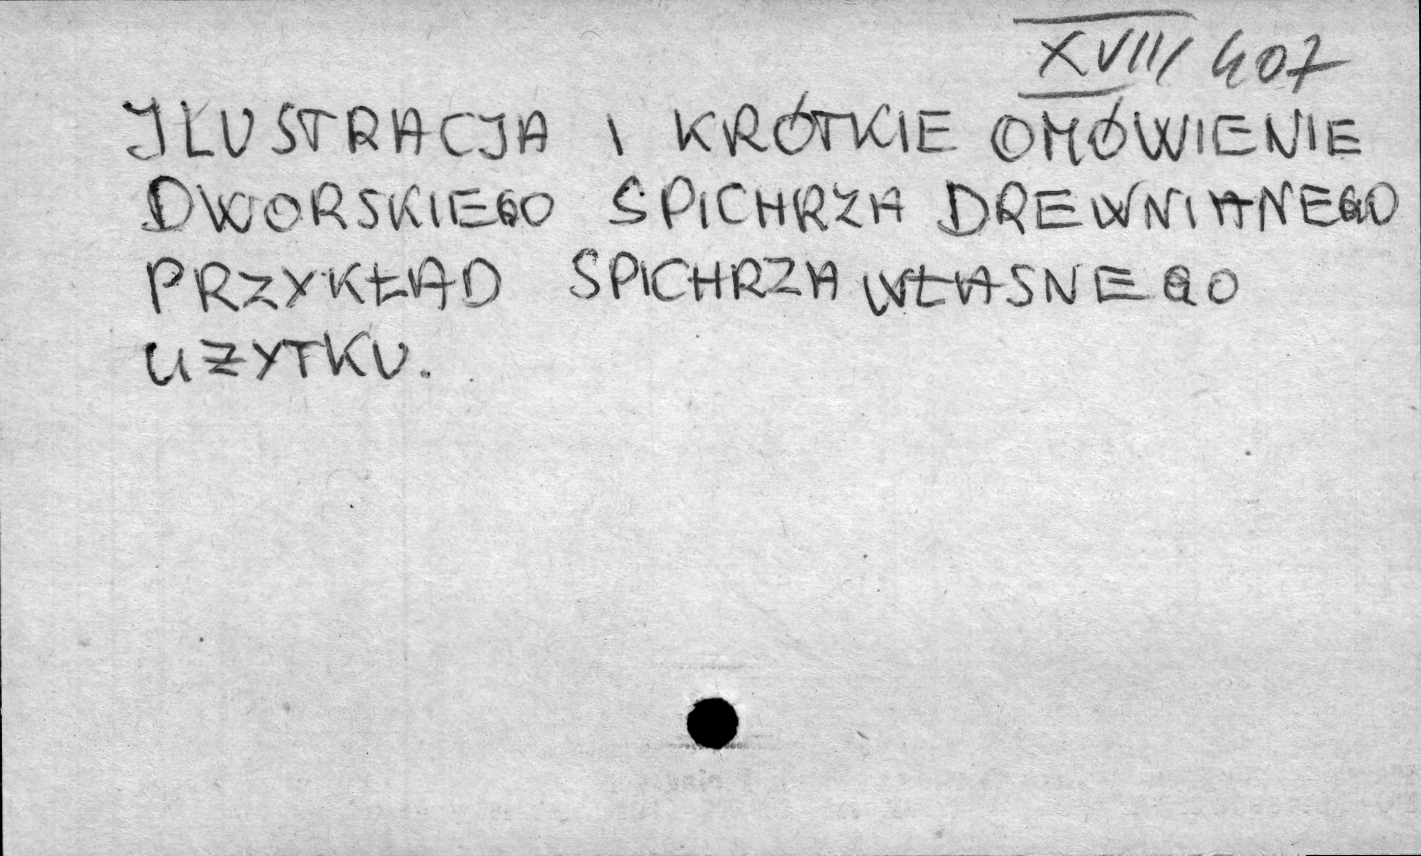 XVIII/407
JLUSTRACJA I KRÓTKIE OMÓWIENIE
DWORSKIEGO SPICHRZA DREWNIANEGO
PRZYKŁAD SPICHRZA WŁASNEGO
UŻYTKU.